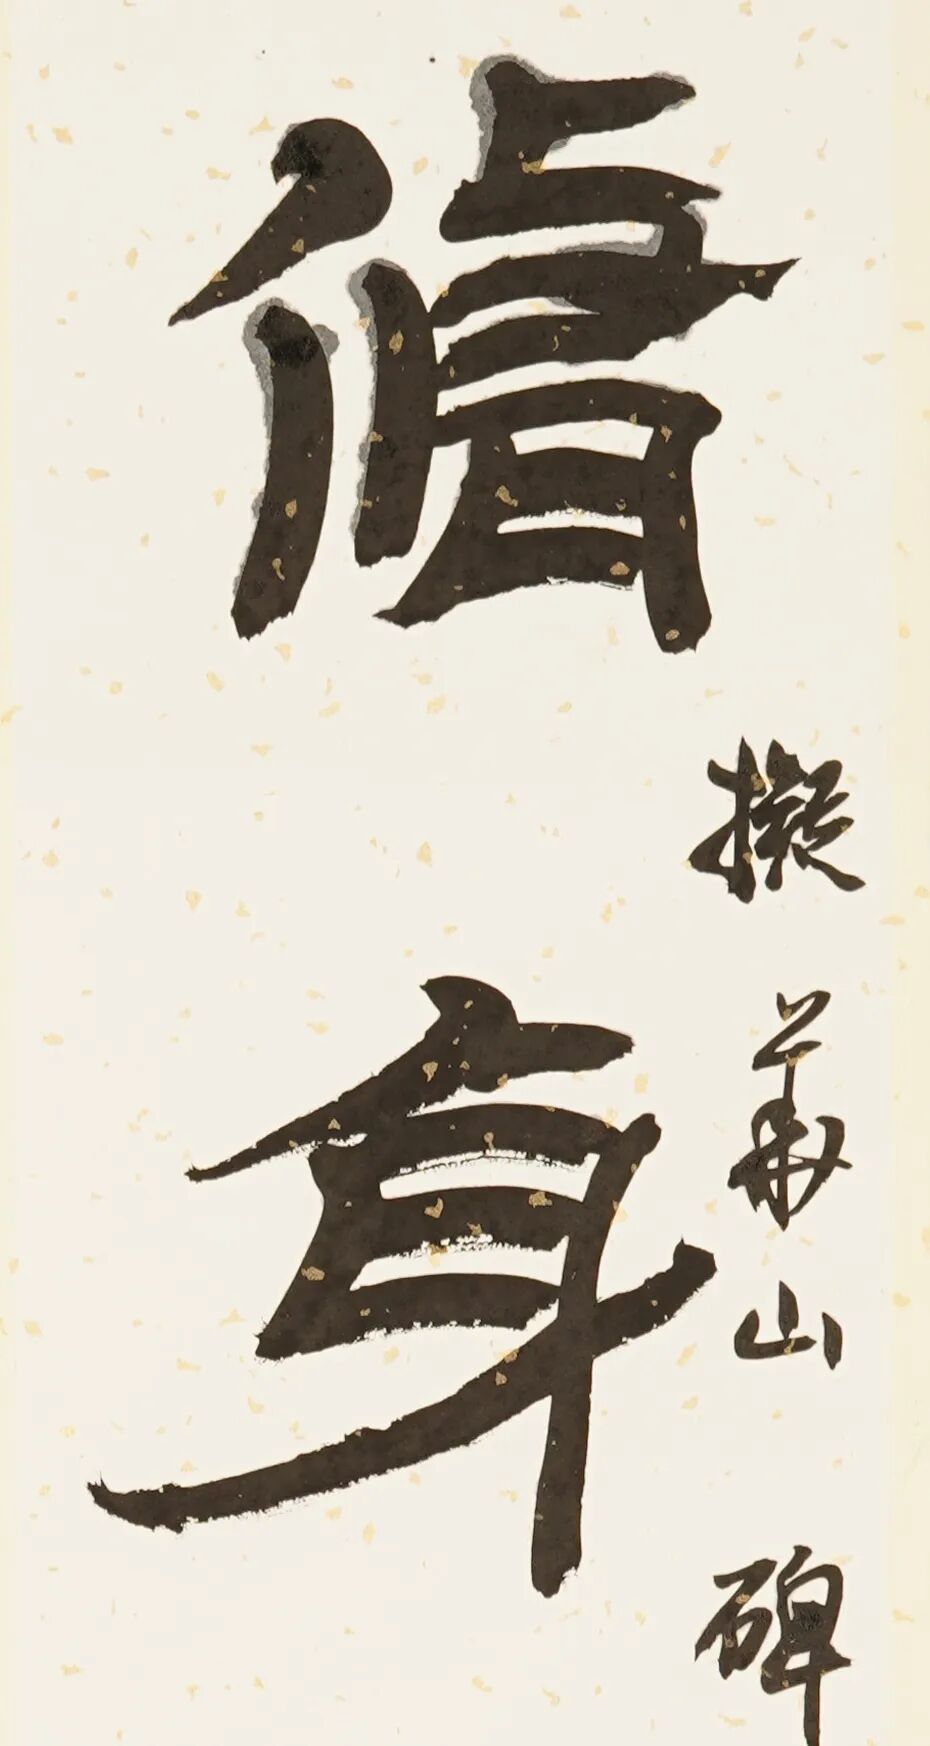 擬華山碑
脩身